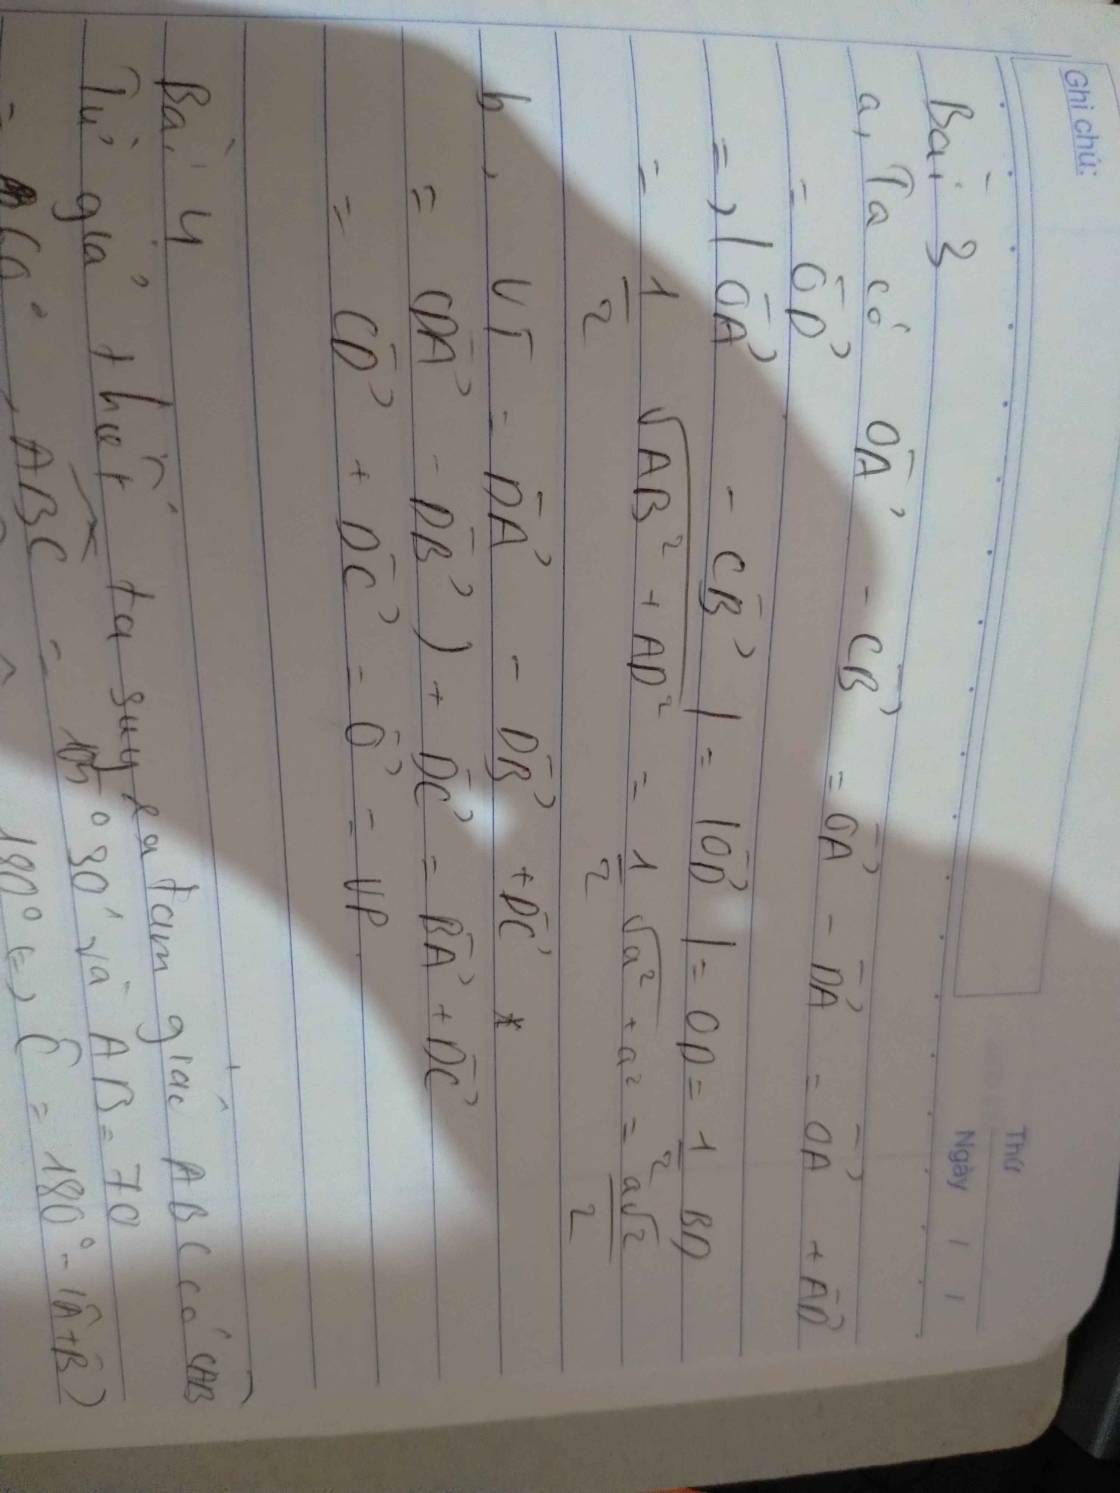 Ghi chú:
Thứ
Ngày / /
Bài 3
a, Ta có OA⃗ - CB⃗ = OA⃗ - DA⃗ = OA⃗ + AD⃗
= OD⃗
=> |OA⃗ - CB⃗| = |OD⃗| = OD = 1/2 BD
= 1/2 √AB² + AD² = 1/2 √a² + a² = a√2/2
b, VT = DA⃗ - DB⃗ + DC⃗ *
= (DA⃗ - DB⃗) + DC⃗ = BA⃗ + DC⃗
= CD⃗ + DC⃗ = 0⃗ = VP
Bài 4
Từ giả thiết ta suy ra tam giác ABC có CAB
30' và AB = 70
Có ABC = 180° <=> Ĉ = 180° - (Â + B̂)